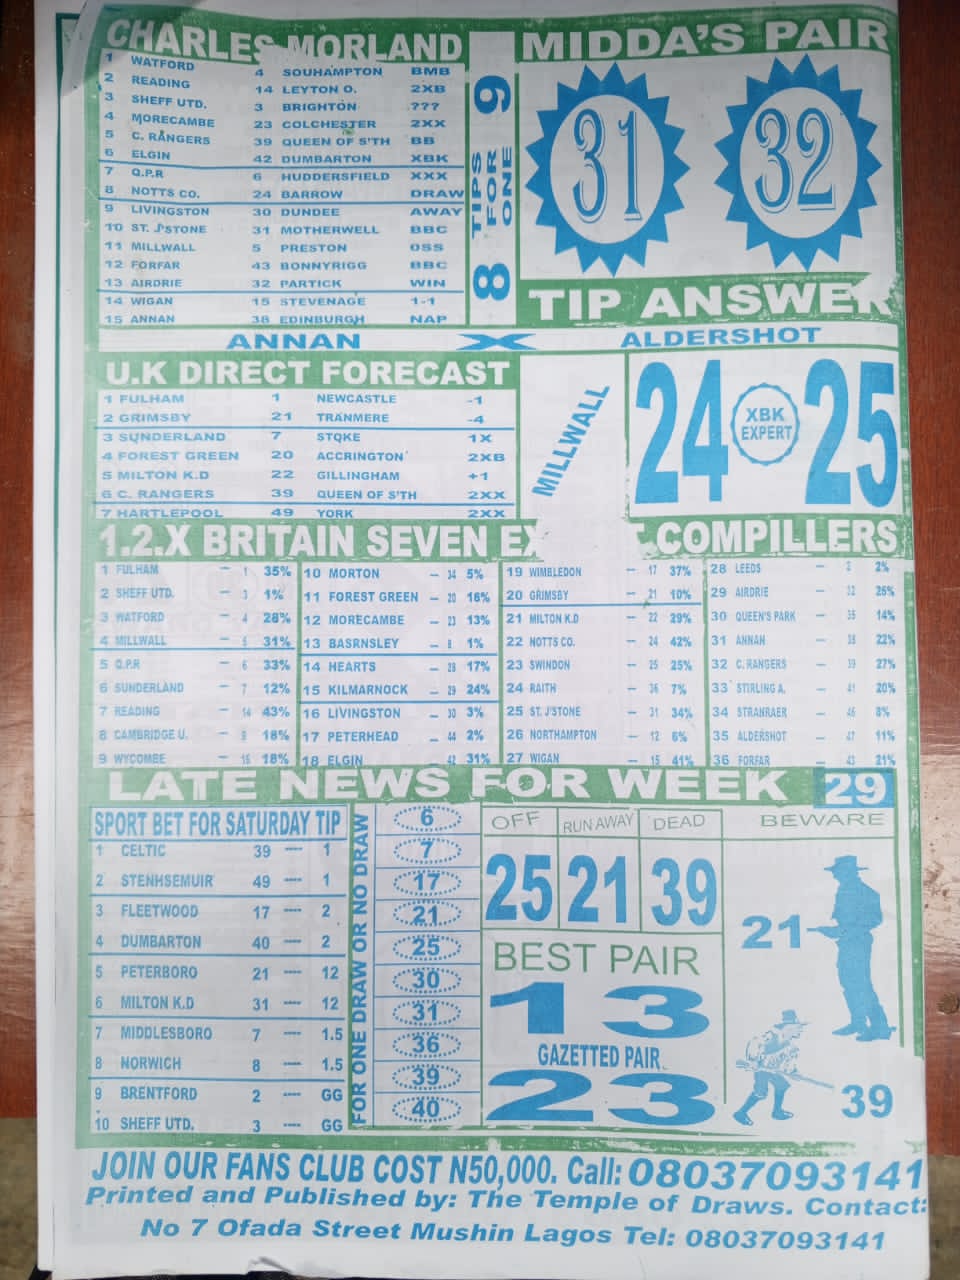 CHARLES MORLAND
1 WATFORD 4 SOUHAMPTON BMB
2 READING 14 LEYTON O. 2XB
3 SHEFF UTD. 3 BRIGHTON ???
4 MORECAMBE 23 COLCHESTER 2XX
5 C. RANGERS 39 QUEEN OF S'TH BB
6 ELGIN 42 DUMBARTON XBK
7 Q.P.R 6 HUDDERSFIELD XXX
8 NOTTS CO. 24 BARROW DRAW
9 LIVINGSTON 30 DUNDEE AWAY
10 ST. J'STONE 31 MOTHERWELL BBC
11 MILLWALL 5 PRESTON OSS
12 FORFAR 43 BONNYRIGG BBC
13 AIRDRIE 32 PARTICK WIN
14 WIGAN 15 STEVENAGE 1-1
15 ANNAN 38 EDINBURGH NAP
8 TIPS FOR ONE 9
MIDDA'S PAIR
31 32
TIP ANSWER
ANNAN X ALDERSHOT
U.K DIRECT FORECAST
1 FULHAM 1 NEWCASTLE -1
2 GRIMSBY 21 TRANMERE -4
3 SUNDERLAND 7 STOKE 1X
4 FOREST GREEN 20 ACCRINGTON 2XB
5 MILTON K.D 22 GILLINGHAM +1
6 C. RANGERS 39 QUEEN OF S'TH 2XX
7 HARTLEPOOL 49 YORK 2XX
MILLWALL
24 XBK EXPERT 25
1.2.X BRITAIN SEVEN COMPILLERS
1 FULHAM – 1 35%
2 SHEFF UTD. – 3 1%
3 WATFORD – 4 28%
4 MILLWALL – 5 31%
5 Q.P.R – 6 33%
6 SUNDERLAND – 7 12%
7 READING – 14 43%
8 CAMBRIDGE U. – 9 18%
9 WYCOMBE – 16 18%
10 MORTON – 34 5%
11 FOREST GREEN – 20 16%
12 MORECAMBE – 23 13%
13 BASRNSLEY – 8 1%
14 HEARTS – 28 17%
15 KILMARNOCK – 29 24%
16 LIVINGSTON – 30 3%
17 PETERHEAD – 44 2%
18 ELGIN – 42 31%
19 WIMBLEDON – 17 37%
20 GRIMSBY – 21 10%
21 MILTON K.D – 22 29%
22 NOTTS CO. – 24 42%
23 SWINDON – 25 25%
24 RAITH – 36 7%
25 ST. J'STONE – 31 34%
26 NORTHAMPTON – 12 6%
27 WIGAN – 15 41%
28 LEEDS – 2 2%
29 AIRDRIE – 32 25%
30 QUEEN'S PARK – 35 14%
31 ANNAN – 38 22%
32 C. RANGERS – 39 27%
33 STIRLING A. – 41 20%
34 STRANRAER – 46 8%
35 ALDERSHOT – 47 11%
36 FORFAR – 43 21%
LATE NEWS FOR WEEK 29
SPORT BET FOR SATURDAY TIP
1 CELTIC 39 ---- 1
2 STENHSEMUIR 49 ---- 1
3 FLEETWOOD 17 ---- 2
4 DUMBARTON 40 ---- 2
5 PETERBORO 21 ---- 12
6 MILTON K.D 31 ---- 12
7 MIDDLESBORO 7 ---- 1.5
8 NORWICH 8 ---- 1.5
9 BRENTFORD 2 ---- GG
10 SHEFF UTD. 3 ---- GG
FOR ONE DRAW OR NO DRAW
6
7
17
21
25
30
31
36
39
40
OFF RUN AWAY DEAD
25 21 39
BEST PAIR
13
GAZETTED PAIR
23
BEWARE
21
39
JOIN OUR FANS CLUB COST N50,000. Call: 08037093141
Printed and Published by: The Temple of Draws. Contact:
No 7 Ofada Street Mushin Lagos Tel: 08037093141